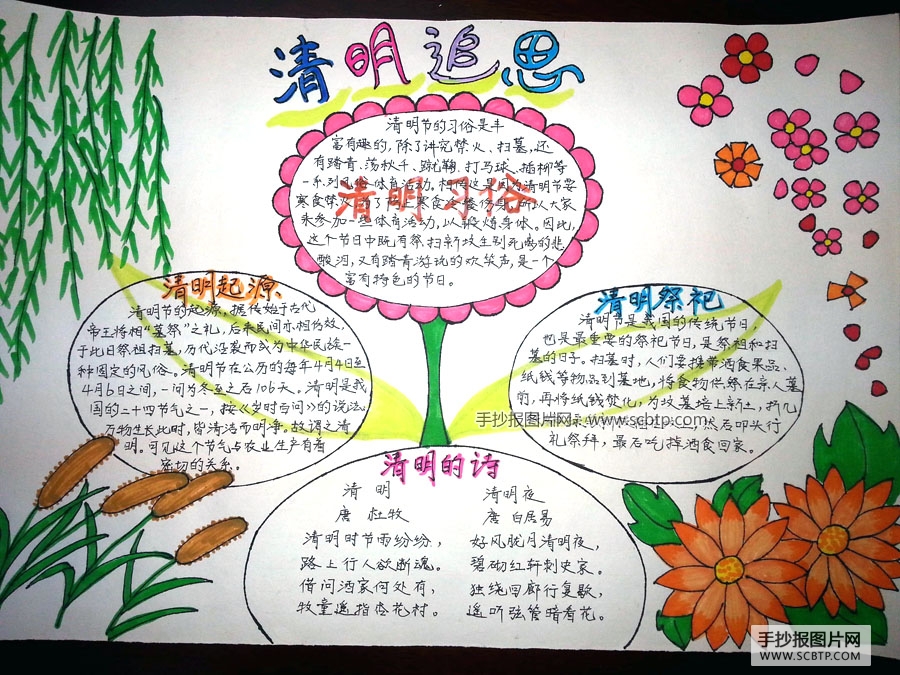 清明追思
清明习俗
清明节的习俗是丰
富有趣的,除了讲究禁火、扫墓,还
有踏青、荡秋千、蹴鞠、打马球、插柳等
一系列风俗体育活动。相传这是因为清明节要
寒食禁火,为了防止寒食冷餐伤身,所以大家
来参加一些体育活动,以锻炼身体。因此,
这个节日中既有祭扫新坟生别死离的悲
酸泪,又有踏青游玩的欢笑声,是一个
富有特色的节日。
清明起源
清明节的起源,据传始于古代
帝王将相“墓祭”之礼,后来民间亦相仿效,
于此日祭祖扫墓,历代沿袭而成为中华民族一
种固定的风俗。清明节在公历的每年4月4日至
4月6日之间,一问为冬至之后106天。清明是我
国的二十四节气之一,按《岁时百问》的说法:
万物生长此时,皆清洁而明净。故谓之清
明。可见这个节气与农业生产有着
密切的关系。
清明祭祀
清明节是我国的传统节日,
也是最重要的祭祀节日,是祭祖和扫
墓的日子。扫墓时,人们要携带酒食果品、
纸钱等物品到墓地,将食物供祭在亲人墓
前,再将纸钱焚化,为坟墓培上新土,折几
然后叩头行
礼祭拜,最后吃掉酒食回家。
手抄报图片网:www.scbtp.com
清明的诗
清 明
唐 杜牧
清明时节雨纷纷,
路上行人欲断魂。
借问酒家何处有,
牧童遥指杏花村。
清明夜
唐 白居易
好风胧月清明夜,
碧砌红轩刺史家。
独绕回廊行复歇,
遥听弦管暗看花。
手抄报图片网
WWW.SCBTP.COM